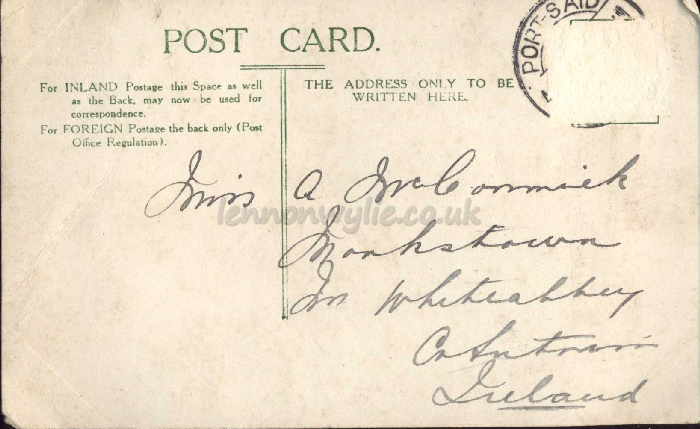 POST CARD.
For INLAND Postage this Space as well
as the Back, may now be used for
correspondence.
For FOREIGN Postage the back only (Post
Office Regulation).
THE ADDRESS ONLY TO BE
WRITTEN HERE.
PORT-SAID
Miss A McCormick
lennonwylie.co.uk
Monkstown
Nr Whiteabbey
Co Antrim
Ireland